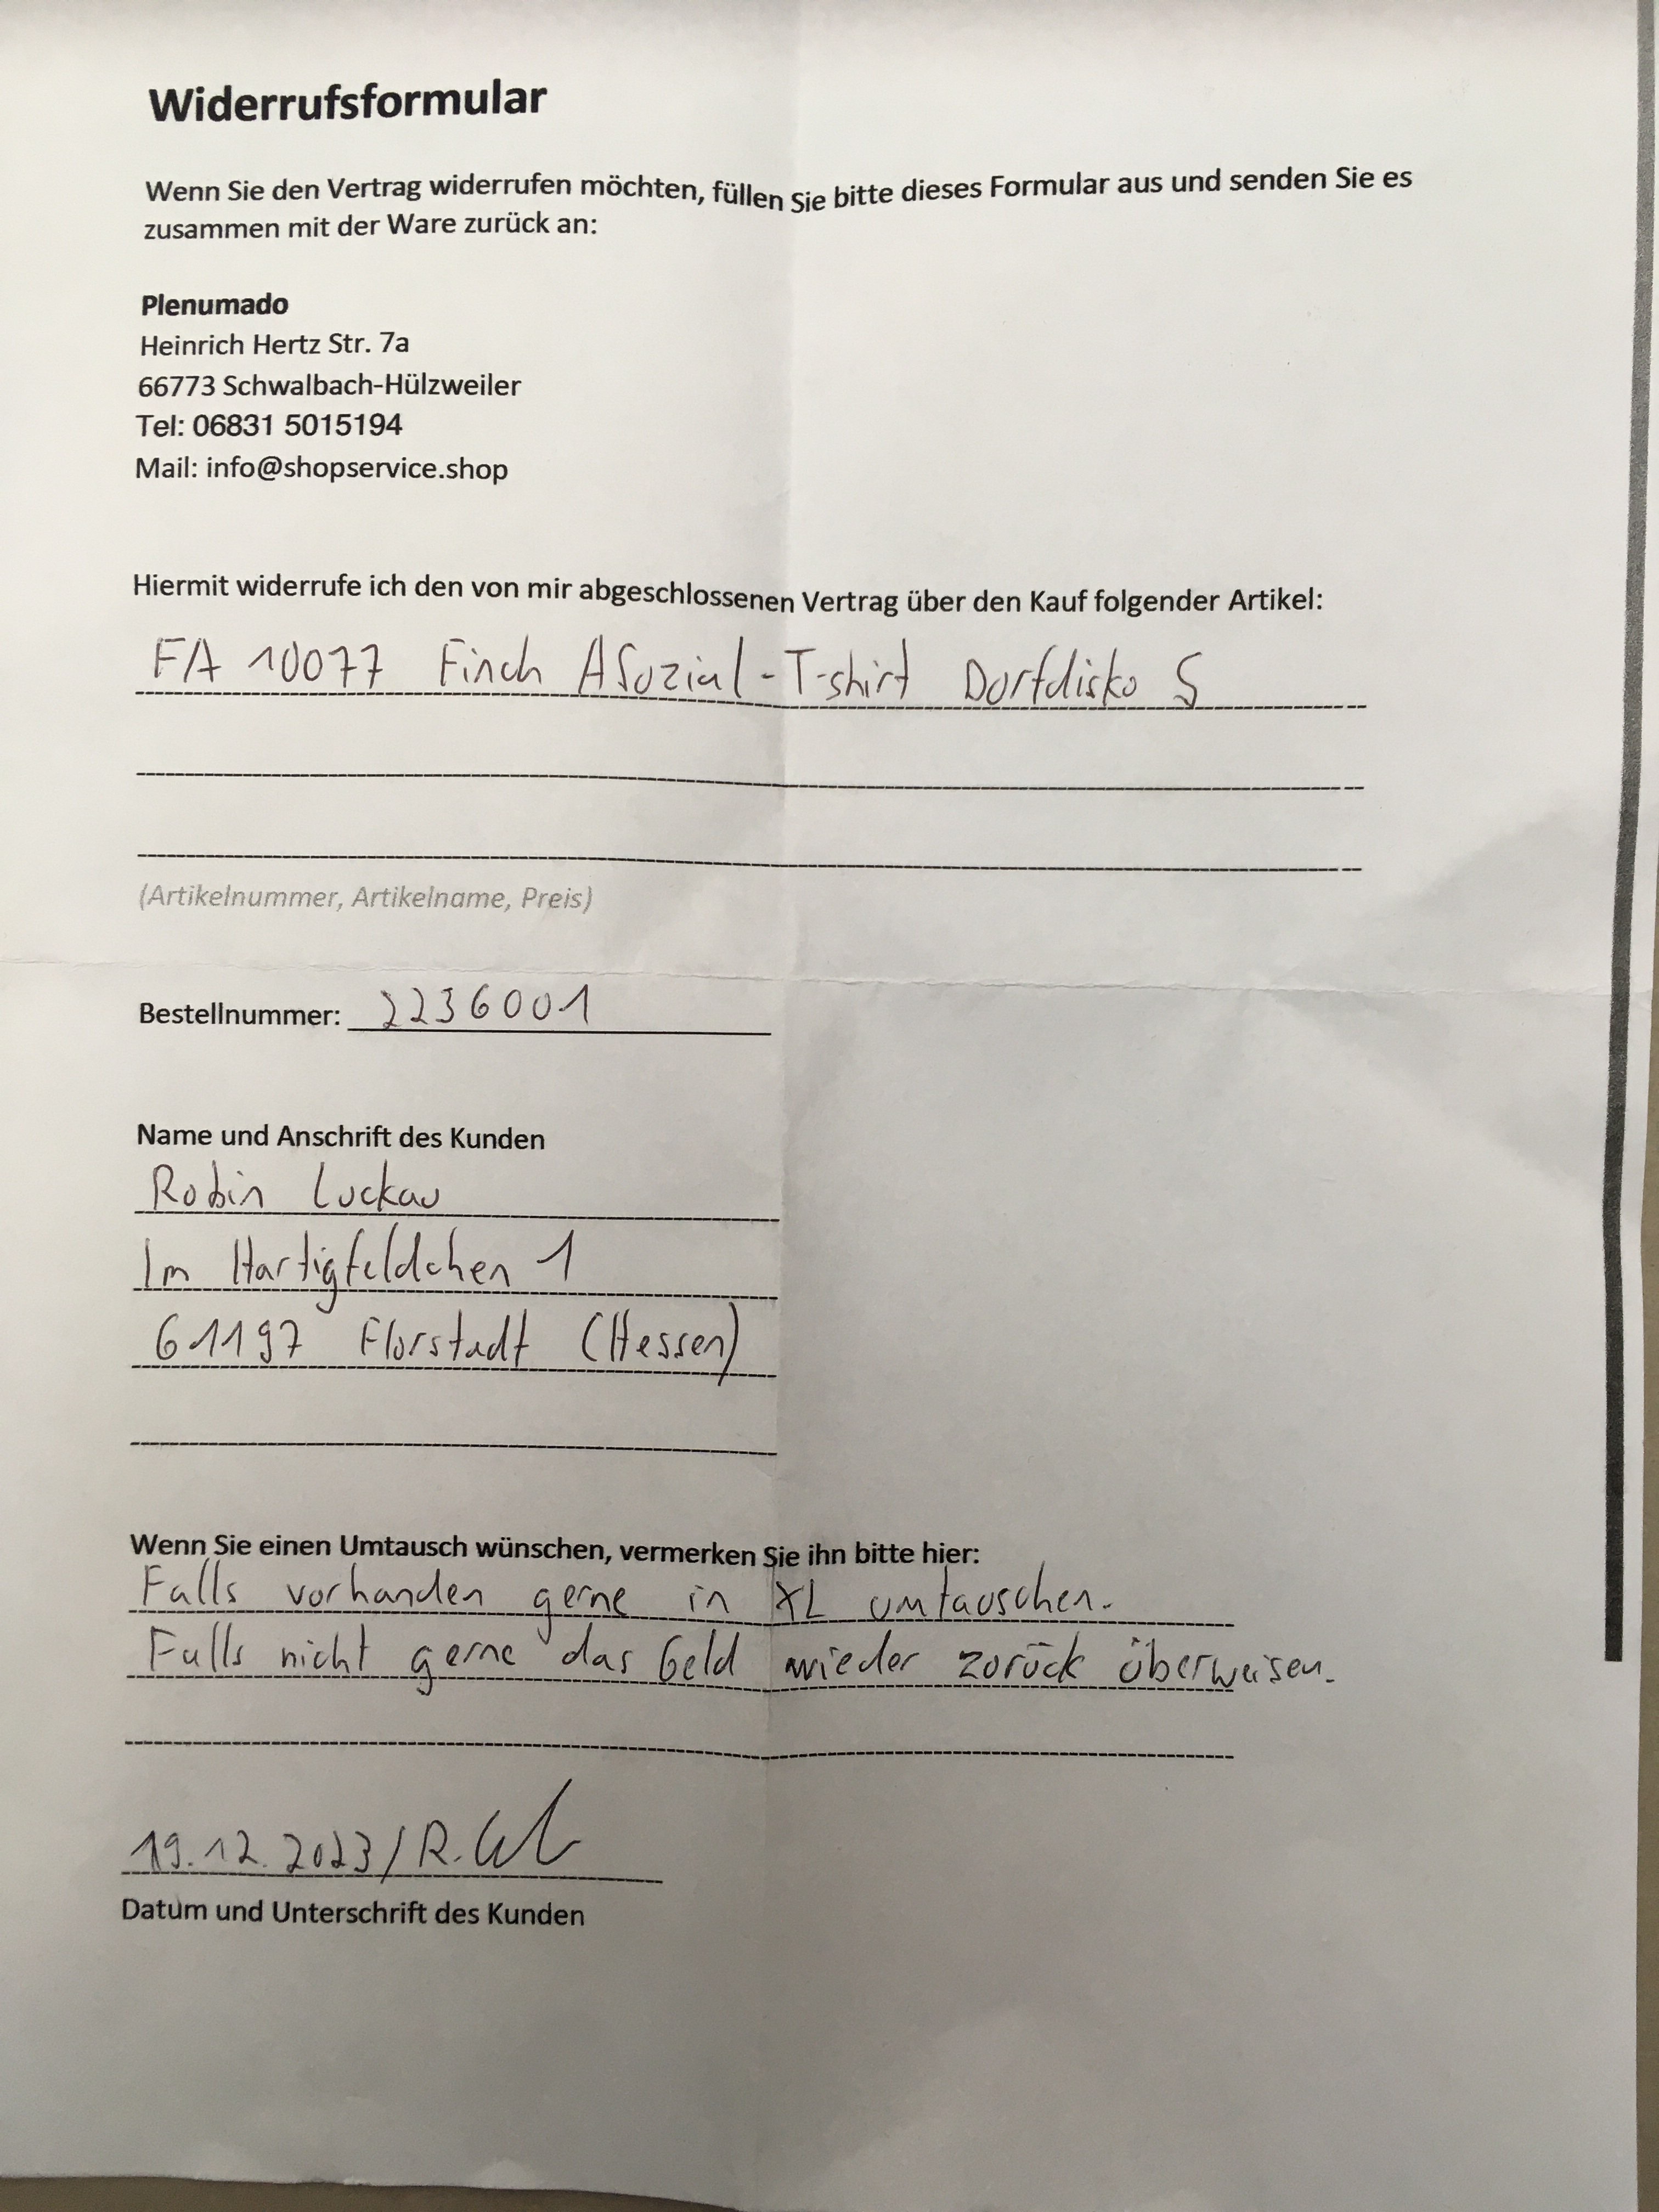 Widerrufsformular
Wenn Sie den Vertrag widerrufen möchten, füllen Sie bitte dieses Formular aus und senden Sie es
zusammen mit der Ware zurück an:
Plenumado
Heinrich Hertz Str. 7a
66773 Schwalbach-Hülzweiler
Tel: 06831 5015194
Mail: info@shopservice.shop
Hiermit widerrufe ich den von mir abgeschlossenen Vertrag über den Kauf folgender Artikel:
FA 10077 Finch ASozial-T-shirt Dorfdisko S
(Artikelnummer, Artikelname, Preis)
Bestellnummer: 2236001
Name und Anschrift des Kunden
Robin Luckau
Im Hartigfeldchen 1
61197 Florstadt (Hessen)
Wenn Sie einen Umtausch wünschen, vermerken Sie ihn bitte hier:
Falls vorhanden gerne in XL umtauschen.
Falls nicht gerne das Geld wieder zurück überweisen.
19.12.2023/R.
Datum und Unterschrift des Kunden